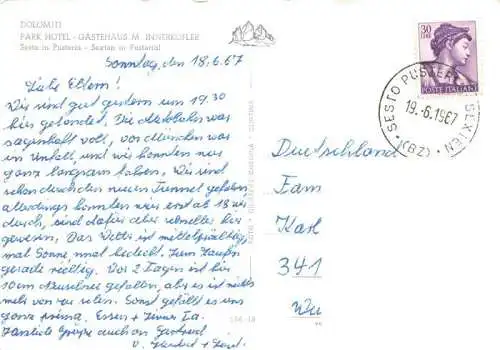 DOLOMITI
PARK HOTEL - GÄSTEHAUS M. INNERKOFLER
Sesto in Pusteria - Sexten im Pustertal
Sonntag, den 18.6.67
Liebe Eltern!
Wir sind gut gestern um 19.30
hier gelandet. Die Autobahn war
sagenhaft voll, vor München war
ein Unfall und wir konnten nur
ganz langsam fahren. Wir sind
schon durch den neuen Tunnel gefahren,
allerdings konnten wir erst ab 18 Uhr
durch, sind dafür aber schneller hier
gewesen. Das Wetter ist mittelprächtig,
mal Sonne, mal bedeckt. Zum Laufen
gerade richtig. Vor 2 Tagen ist hier
10 cm Neuschnee gefallen, aber es ist nichts
mehr von zu sehen. Sonst gefällt es uns
ganz prima. Essen + Zimmer Ia.
Herzliche Grüße auch an Gertrud
v.
30
LIRE
POSTE ITALIANE
SESTO PUSTERIA · SEXTEN · (BZ) ·
19.-6.1967
Deutschland
Fam
Karl
341
Wu